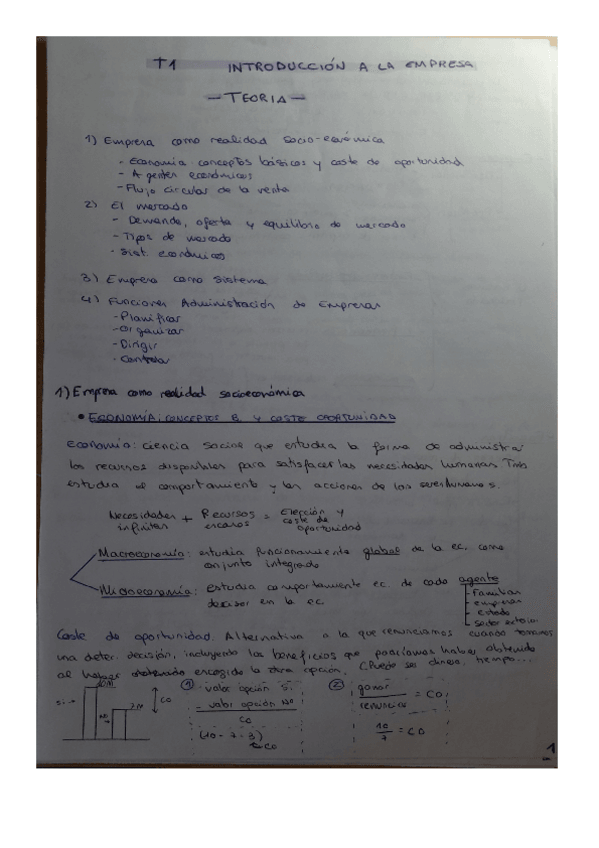 T1 INTRODUCCIÓN A LA EMPRESA
- TEORIA -
1) Empresa como realidad socio-económica
- Economía conceptos básicos y coste de oportunidad
- Agentes económicos
- Flujo circular de la renta
2) El mercado
- Demanda, oferta y equilibrio de mercado
- Tipos de mercado
- Sist. económicos
3) Empresa como sistema
4) Funciones Administración de Empresas
- Planificar
- Organizar
- Dirigir
- Controlar
1) Empresa como realidad socioeconómica
• ECONOMÍA: CONCEPTOS B. Y COSTE OPORTUNIDAD
Economía: ciencia social que estudia la forma de administrar
los recursos disponibles para satisfacer las necesidades humanas. Tmb
estudia el comportamiento y las acciones de los seres humanos.
Necesidades infinitas + Recursos escasos = Elección y coste de oportunidad
Macroeconomía: estudia funcionamiento global de la ec. como
conjunto integrado
Microeconomía: estudia comportamiento ec. de cada agente
decisor en la ec.
- Familias
- empresas
- estado
- sector exterior
Coste de oportunidad. Alternativa a la que renunciamos cuando tomamos
una deter. decisión, incluyendo los beneficios que podríamos haber obtenido
al haber escogido la otra opción. (Puede ser dinero, tiempo...
Si → 10M
NO → 7M
CO
① valor opción Si
- valor opción No
CO
(10 - 7 = 3)
CO
② ganar / renunciar = CO
10 / 7 = CO
1